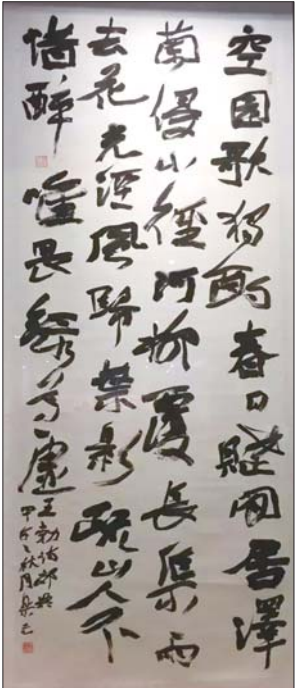 空園歌獨酌春日賦閑居澤
蘭侵小徑河柳覆長渠雨
去花光濕風歸葉影疏山人不
惜醉唯畏綠尊虛
王勃詩郊興
甲午秋月